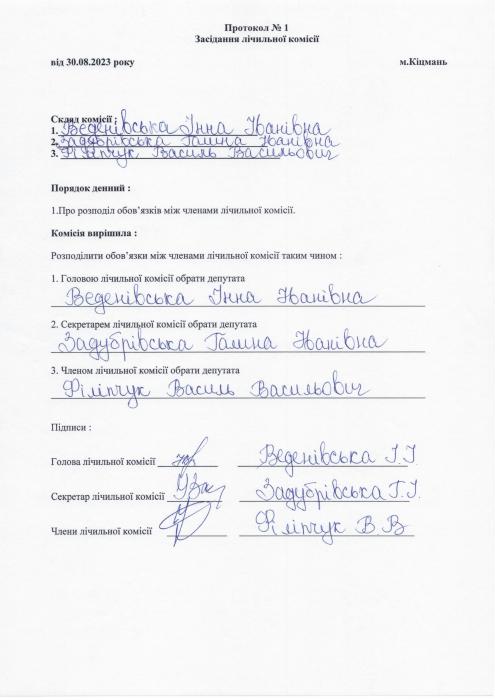 Протокол № 1
Засідання лічильної комісії
від 30.08.2023 року м.Кіцмань
Склад комісії :
1. Веденівська Інна Іванівна
2. Задубрівська Галина Іванівна
3. Філіпчук Василь Васильович
Порядок денний :
1.Про розподіл обов’язків між членами лічильної комісії.
Комісія вирішила :
Розподілити обов’язки між членами лічильної комісії таким чином :
1. Головою лічильної комісії обрати депутата
Веденівська Інна Іванівна
2. Секретарем лічильної комісії обрати депутата
Задубрівська Галина Іванівна
3. Членом лічильної комісії обрати депутата
Філіпчук Василь Васильович
Підписи :
Голова лічильної комісії Веденівська І.І
Секретар лічильної комісії Задубрівська Г.І.
Члени лічильної комісії Філіпчук В В